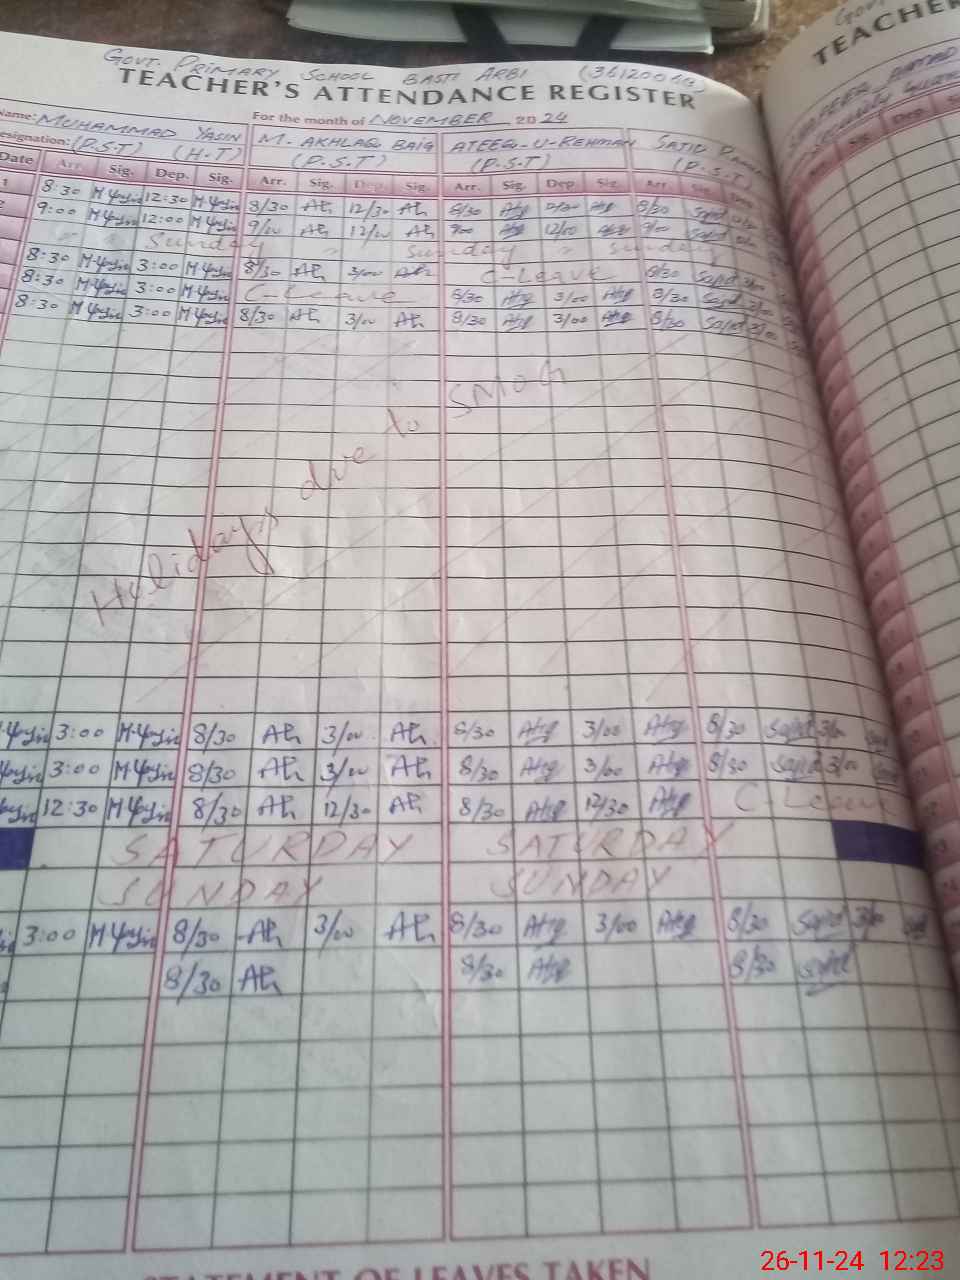 GOVT. PRIMARY SCHOOL BASTI ARBI
TEACHER'S ATTENDANCE REGISTER
TEACHER
For the month of NOVEMBER 2024
Name: MUHAMMAD YASIN M. AKHLAQ BAIG ATEEQ-U-REHMAN SAJID
esignation: (P.S.T) (H-T) (P.S.T) (P.S.T) (P.S.T)
Date Arr. Sig. Dep. Sig. Arr. Sig. Dep. Sig. Arr. Sig. Dep. Sig. Arr. Sig. Dep.
1 8:30 M Yasin 12:30 M Yasin 8/30 Ah 12/30 Ah 8/30 Atq 12/30 Atq 8/30 Sajid
9:00 M Yasin 12:00 M Yasin 9/00 Ah 12/00 Ah 9/00 Atq 12/00 Atq 9/00 Sajid
" " Sunday " Sunday " Sunday
8:30 M Yasin 3:00 M Yasin 8/30 Ah 3/00 Ah C-Leave 8/30 Sajid 3/00
8:30 M Yasin 3:00 M Yasin C-Leave 8/30 Atq 3/00 Atq 8/30 Sajid 3/00
8:30 M Yasin 3:00 M Yasin 8/30 Ah 3/00 Ah 8/30 Atq 3/00 Atq 8/30 Sajid 3/00
Holidays due to SMOG
M Yasin 3:00 M Yasin 8/30 Ah 3/00 Ah 8/30 Atq 3/00 Atq 8/30 Sajid 3/00
Yasin 3:00 M Yasin 8/30 Ah 3/00 Ah 8/30 Atq 3/00 Atq 8/30 Sajid 3/00
Yasin 12:30 M Yasin 8/30 Ah 12/30 Ah 8/30 Atq 12/30 Atq C-Leave
SATURDAY SATURDAY
SUNDAY SUNDAY
3:00 M Yasin 8/30 Ah 3/00 Ah 8/30 Atq 3/00 Atq 8/30 Sajid 3/00
8/30 Ah 8/30 Atq 8/30 Sajid
STATEMENT OF LEAVES TAKEN
26-11-24 12:23